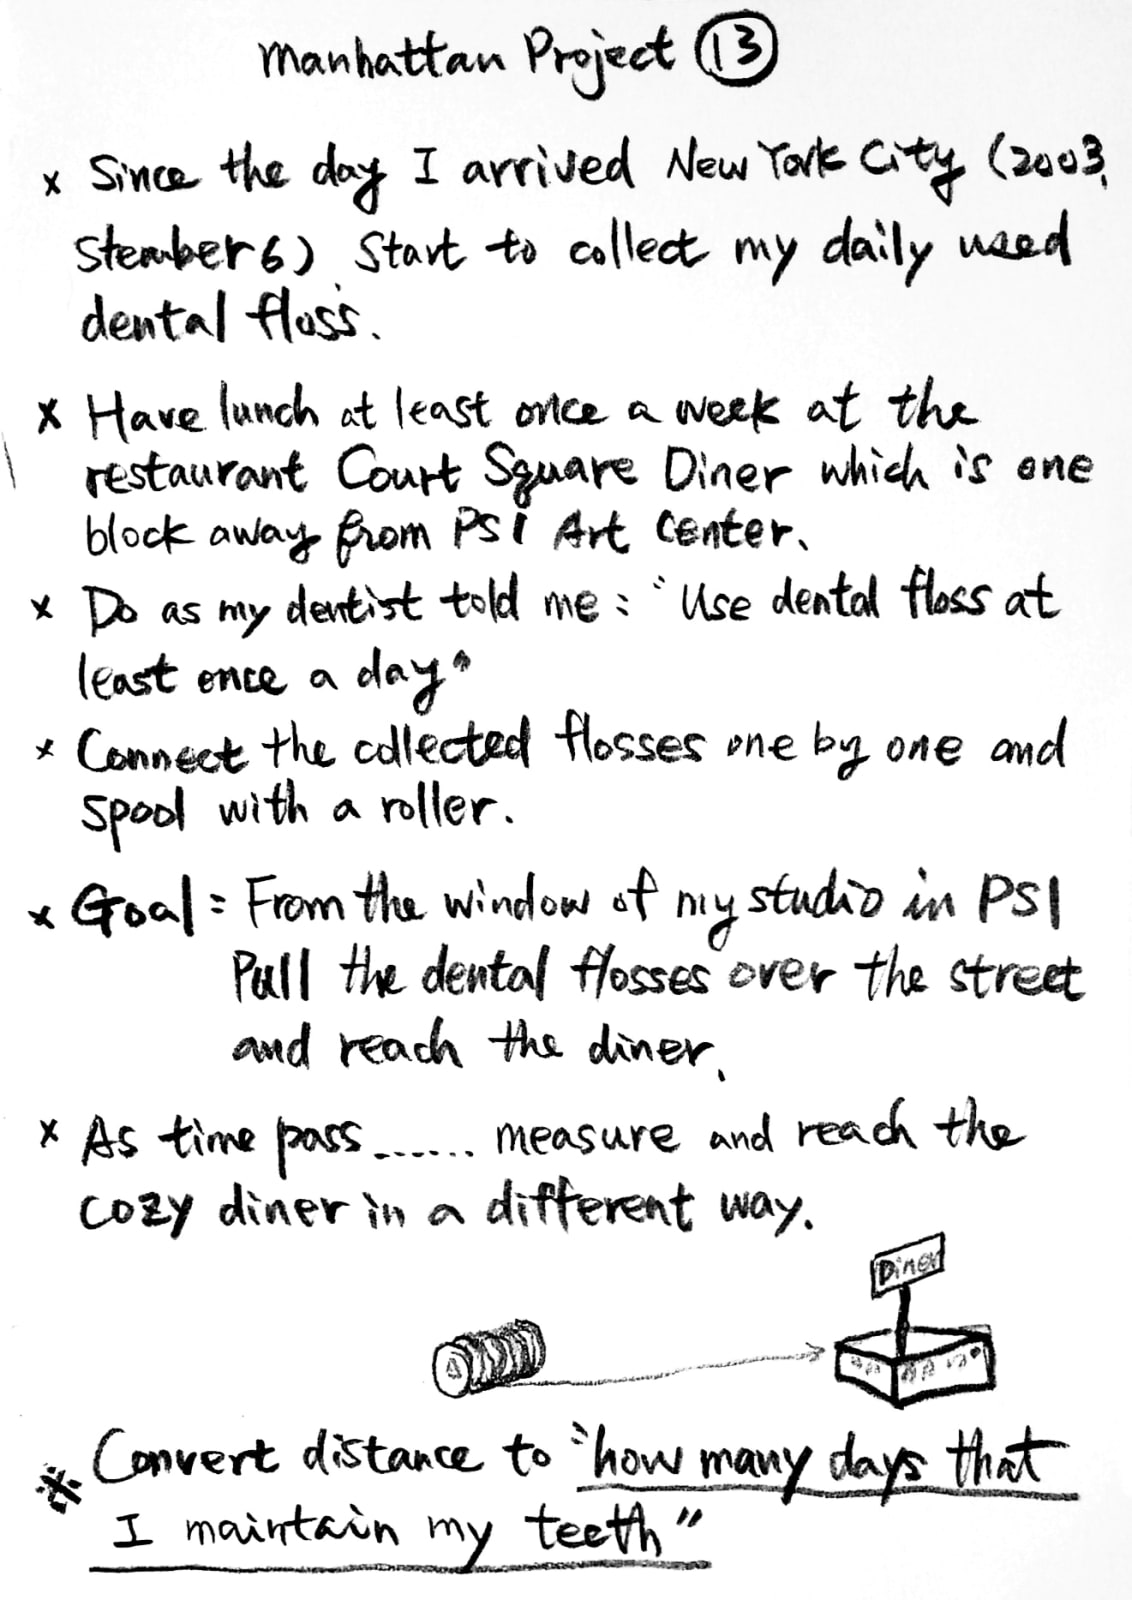 Manhattan Project ⑬
x Since the day I arrived New York City (2003,
Stember 6) Start to collect my daily used
dental floss.
x Have lunch at least once a week at the
restaurant Court Square Diner which is one
block away from PS1 Art Center.
x Do as my dentist told me : "Use dental floss at
least once a day"
x Connect the collected flosses one by one and
spool with a roller.
x Goal = From the window of my studio in PS1
Pull the dental flosses over the street
and reach the diner.
x As time pass ...... measure and reach the
cozy diner in a different way.
Diner
※ Convert distance to "how many days that
I maintain my teeth"